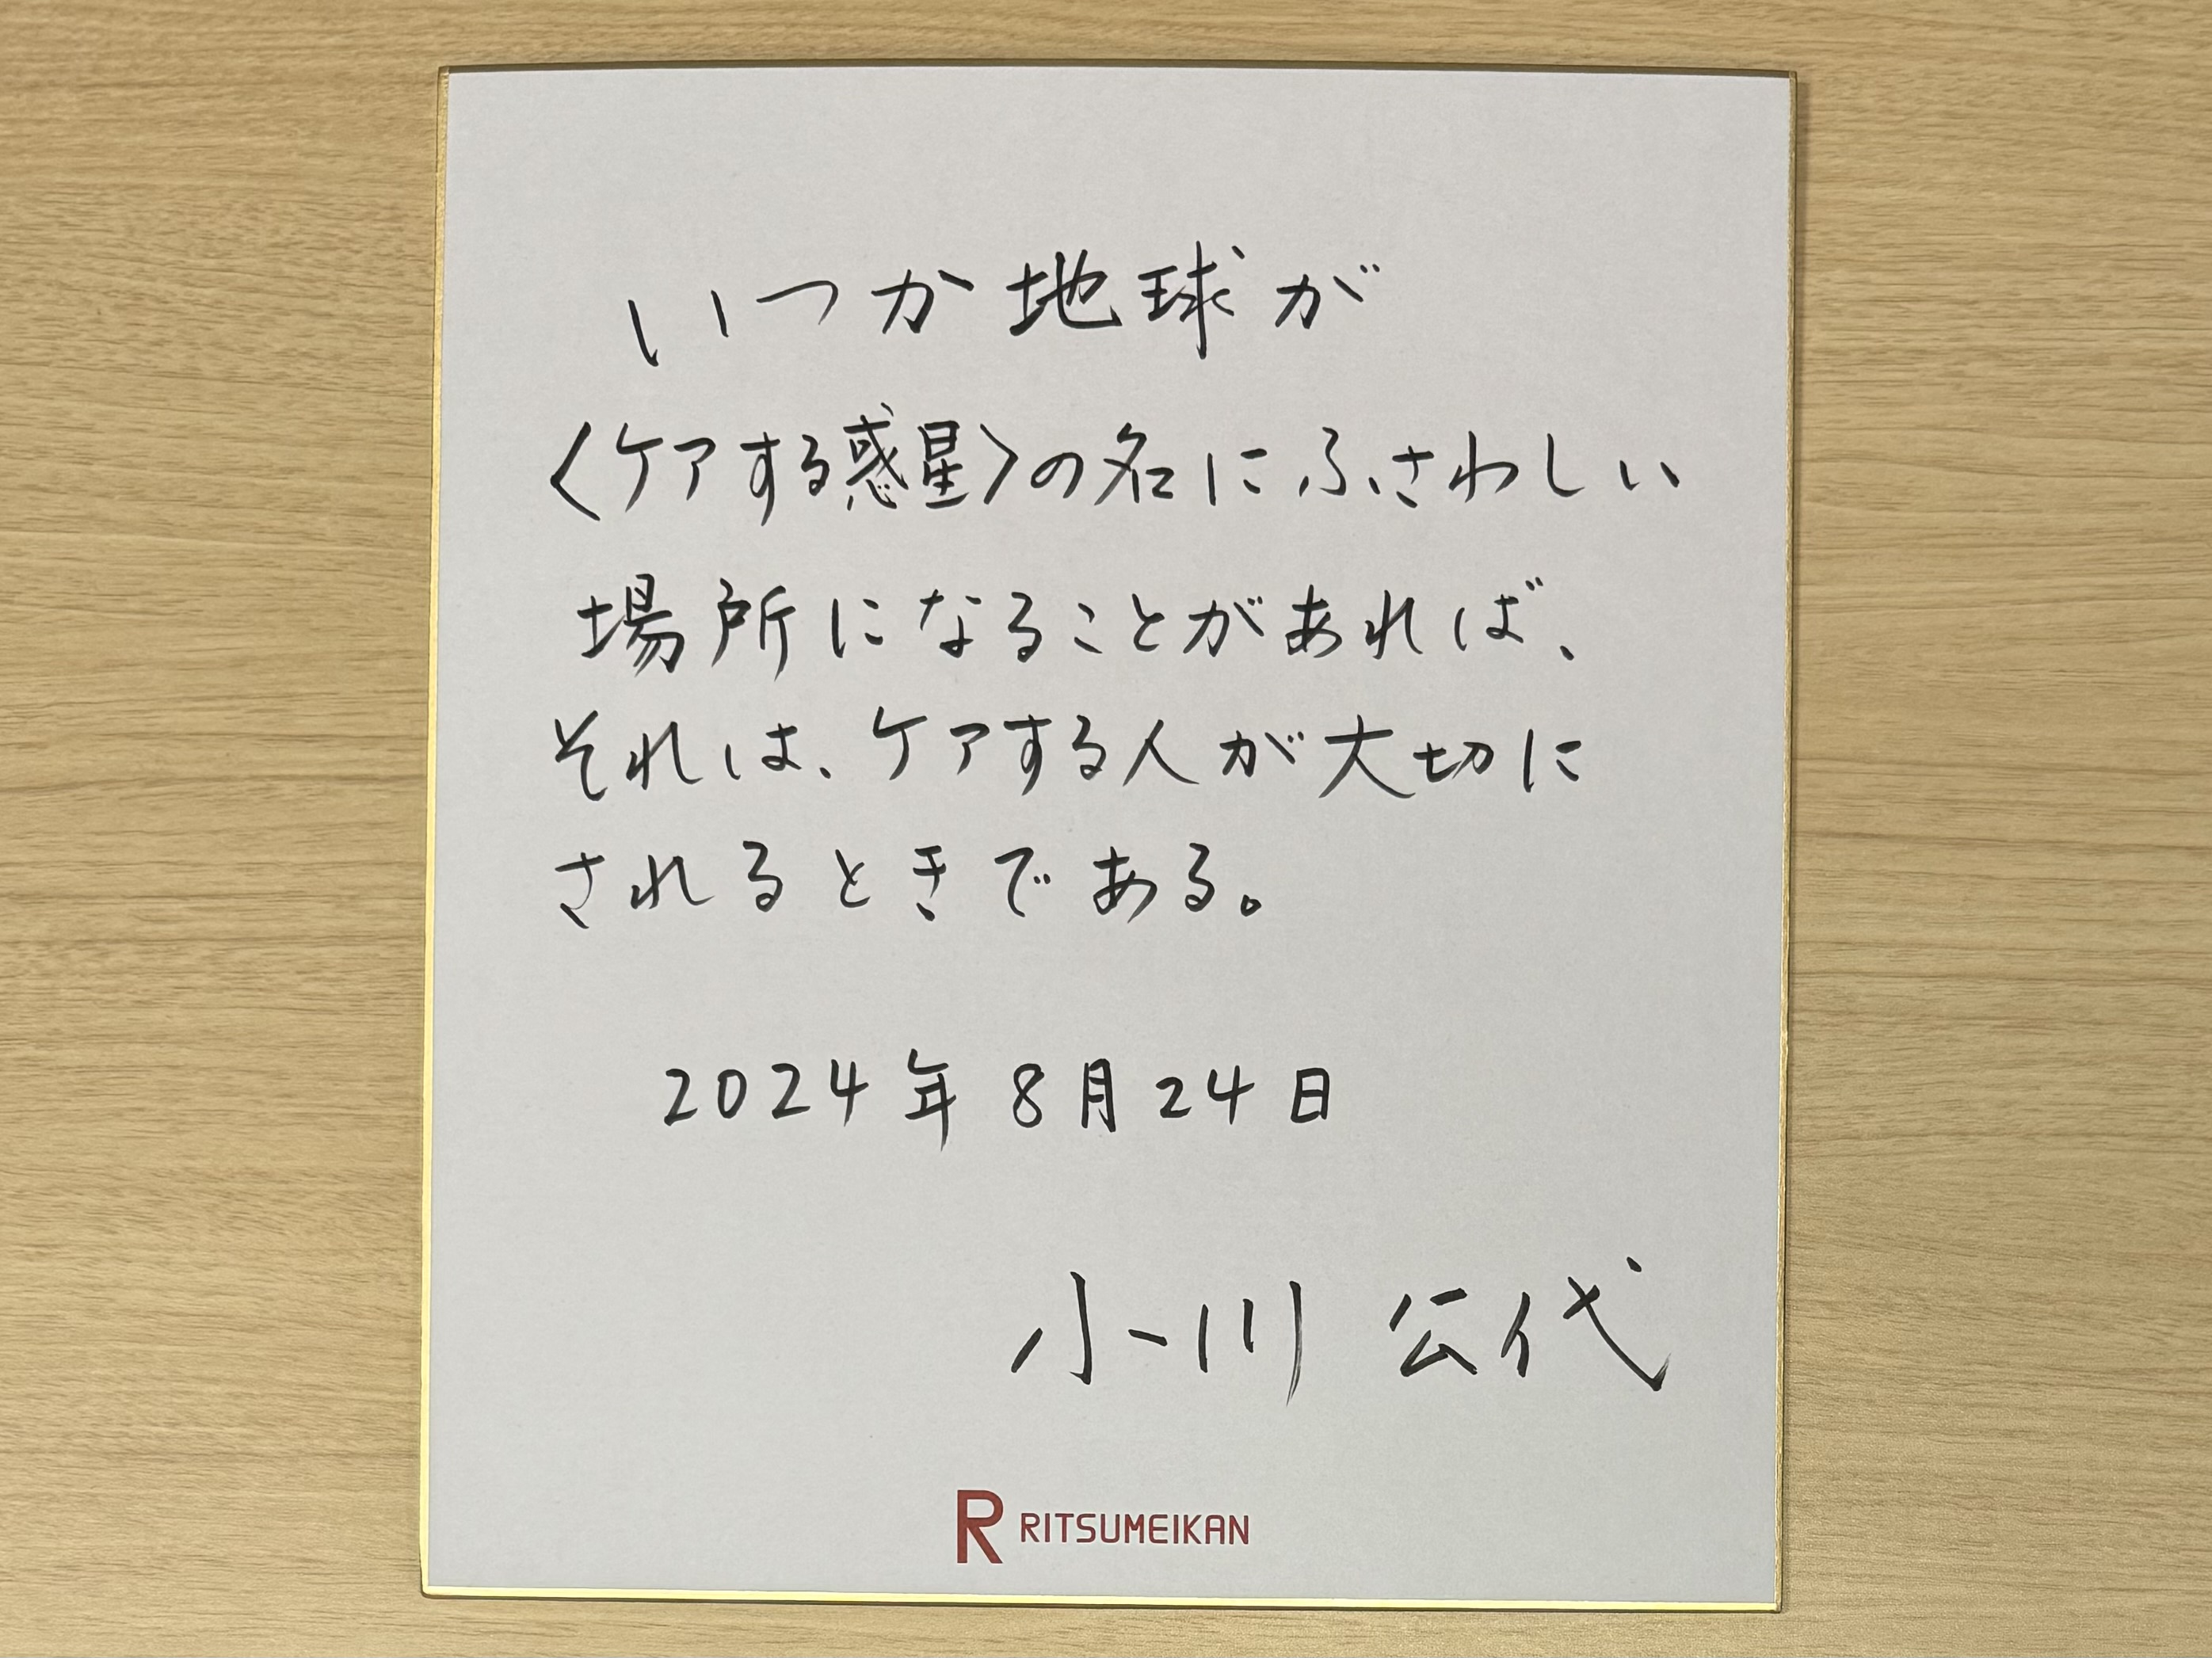 いつか地球が
〈ケアする惑星〉の名にふさわしい
場所になることがあれば、
それは、ケアする人が大切に
されるときである。
2024年8月24日
小川 公代
R RITSUMEIKAN